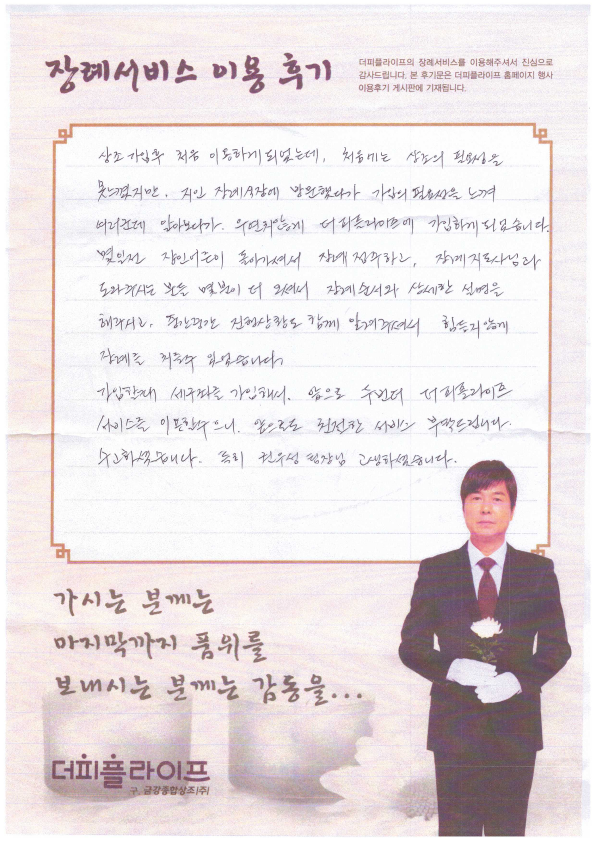 장례서비스 이용 후기
더피플라이프의 장례서비스를 이용해주셔서 진심으로
감사드립니다. 본 후기문은 더피플라이프 홈페이지 행사
이용후기 게시판에 기재됩니다.
상조 가입후 처음 이용하게 되었는데, 처음에는 상조의 필요성을
못느꼈지만, 지인 장례식장에 방문했다가 가입의 필요성을 느껴
여러군데 알아보다가 우연치않게 더피플라이프에 가입하게 되었습니다.
몇일전 장인어른이 돌아가셔서 장례 접수하고, 장례지도사님과
도와주시는 분들 몇분이 더 오셔서 장례순서와 상세한 설명을
해주시고, 중간중간 진행상황도 함께 알려주셔서 힘들지않게
장례를 치를수 있었습니다.
가입할때 세구좌를 가입해서, 앞으로 두번더 더피플라이프
서비스를 이용할수있으니, 앞으로도 친절한 서비스 부탁드립니다.
수고하셨습니다. 특히 권우성 팀장님 고생하셨습니다.
가시는 분께는
마지막까지 품위를
보내시는 분께는 감동을...
더피플라이프
구. 금강종합상조(주)